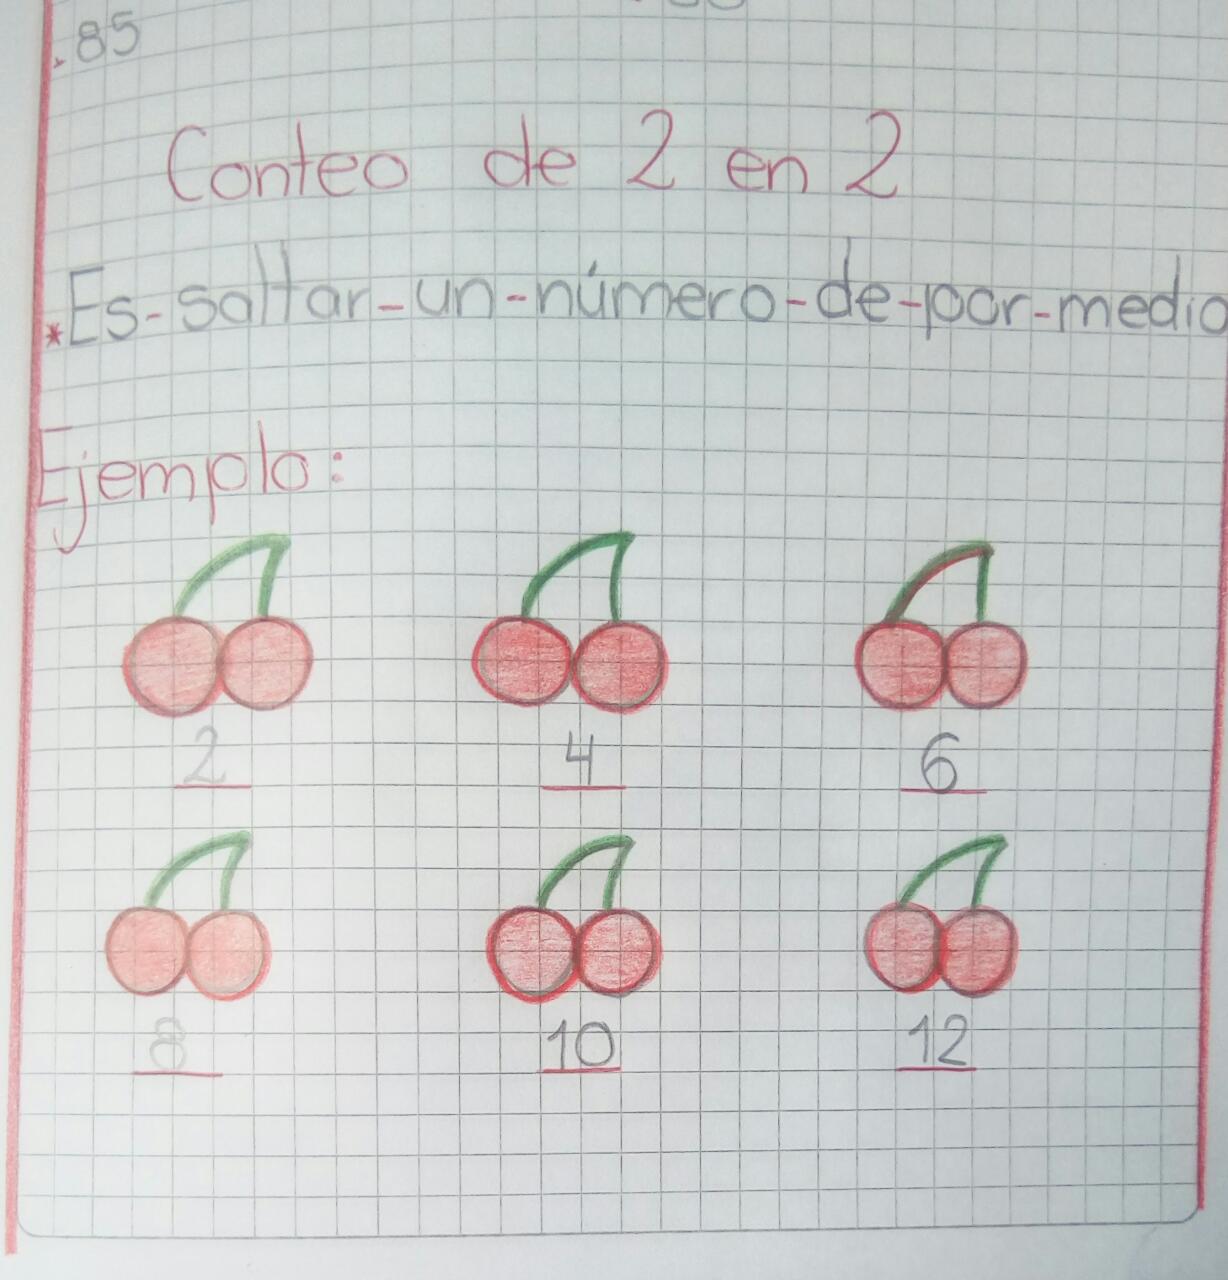 .85
Conteo de 2 en 2
*Es-saltar-un-número-de-por-medio
Ejemplo:
2 4 6
8 10 12